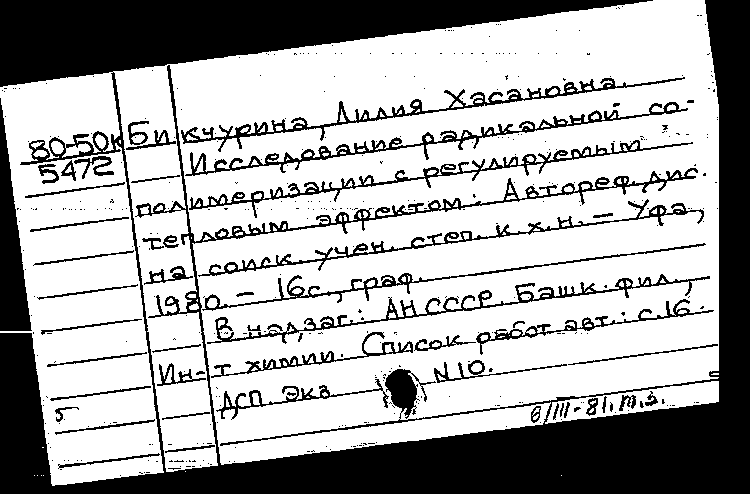 80-50к
5472
Бикчурина, Лилия Хасановна.
Исследование радикальной со-
полимеризации с регулируемым
тепловым эффектом: Автореф. дис.
на соиск. учен. степ. к.х.н. – Уфа,
1980. – 16с., граф.
В надзаг.: АН СССР. Башк. фил.,
Ин-т химии. Список работ авт.: с.16.
ДСП. Экз N10.
5
6/III-81. т.з.